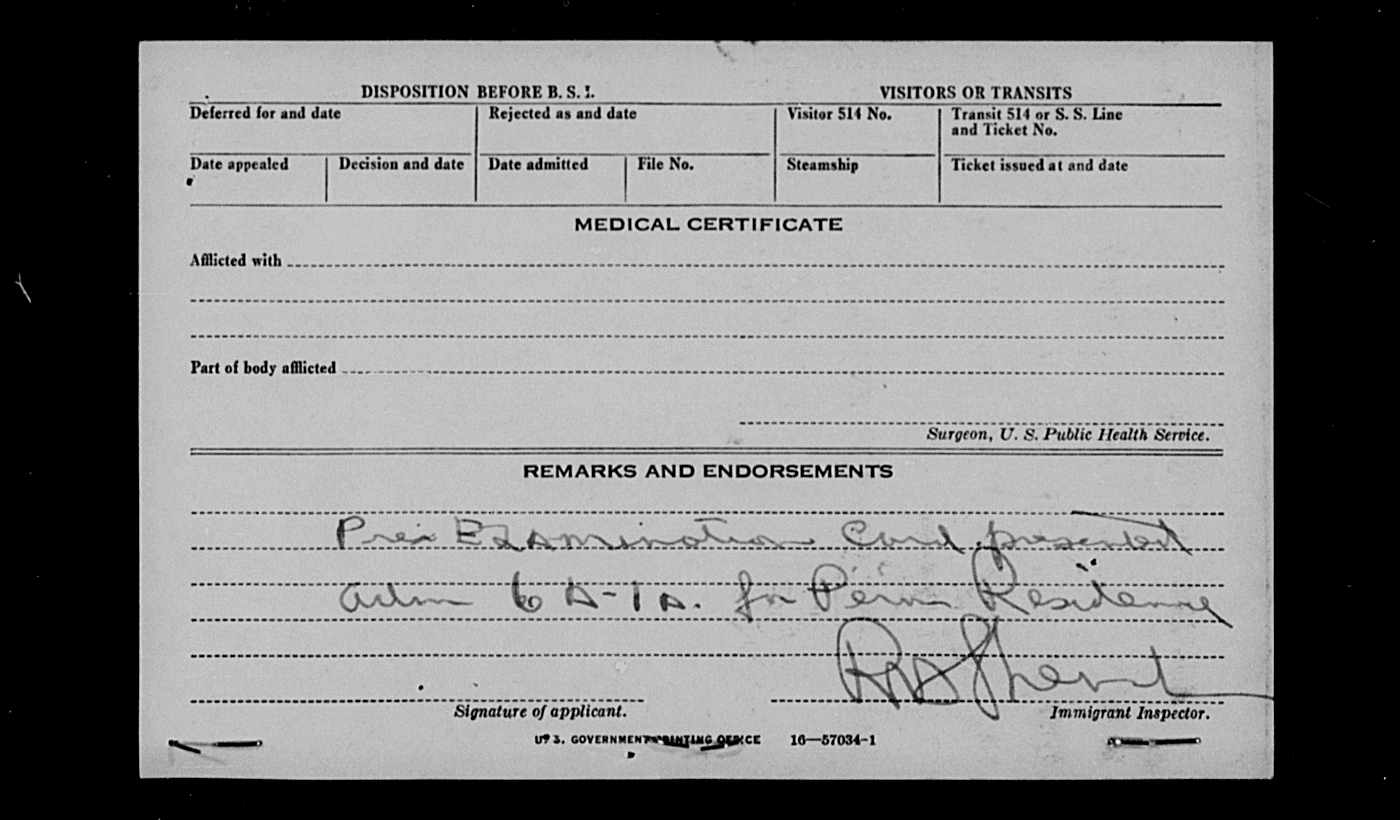 DISPOSITION BEFORE B. S. I.
VISITORS OR TRANSITS
Deferred for and date
Rejected as and date
Visitor 514 No.
Transit 514 or S. S. Line
and Ticket No.
Date appealed
Decision and date
Date admitted
File No.
Steamship
Ticket issued at and date
MEDICAL CERTIFICATE
Afflicted with
Part of body afflicted
Surgeon, U. S. Public Health Service.
REMARKS AND ENDORSEMENTS
Pre Examination Card presented
Adm 6 A-1 A. for Perm Residence
Signature of applicant.
Immigrant Inspector.
U. S. GOVERNMENT PRINTING OFFICE 16—57034-1